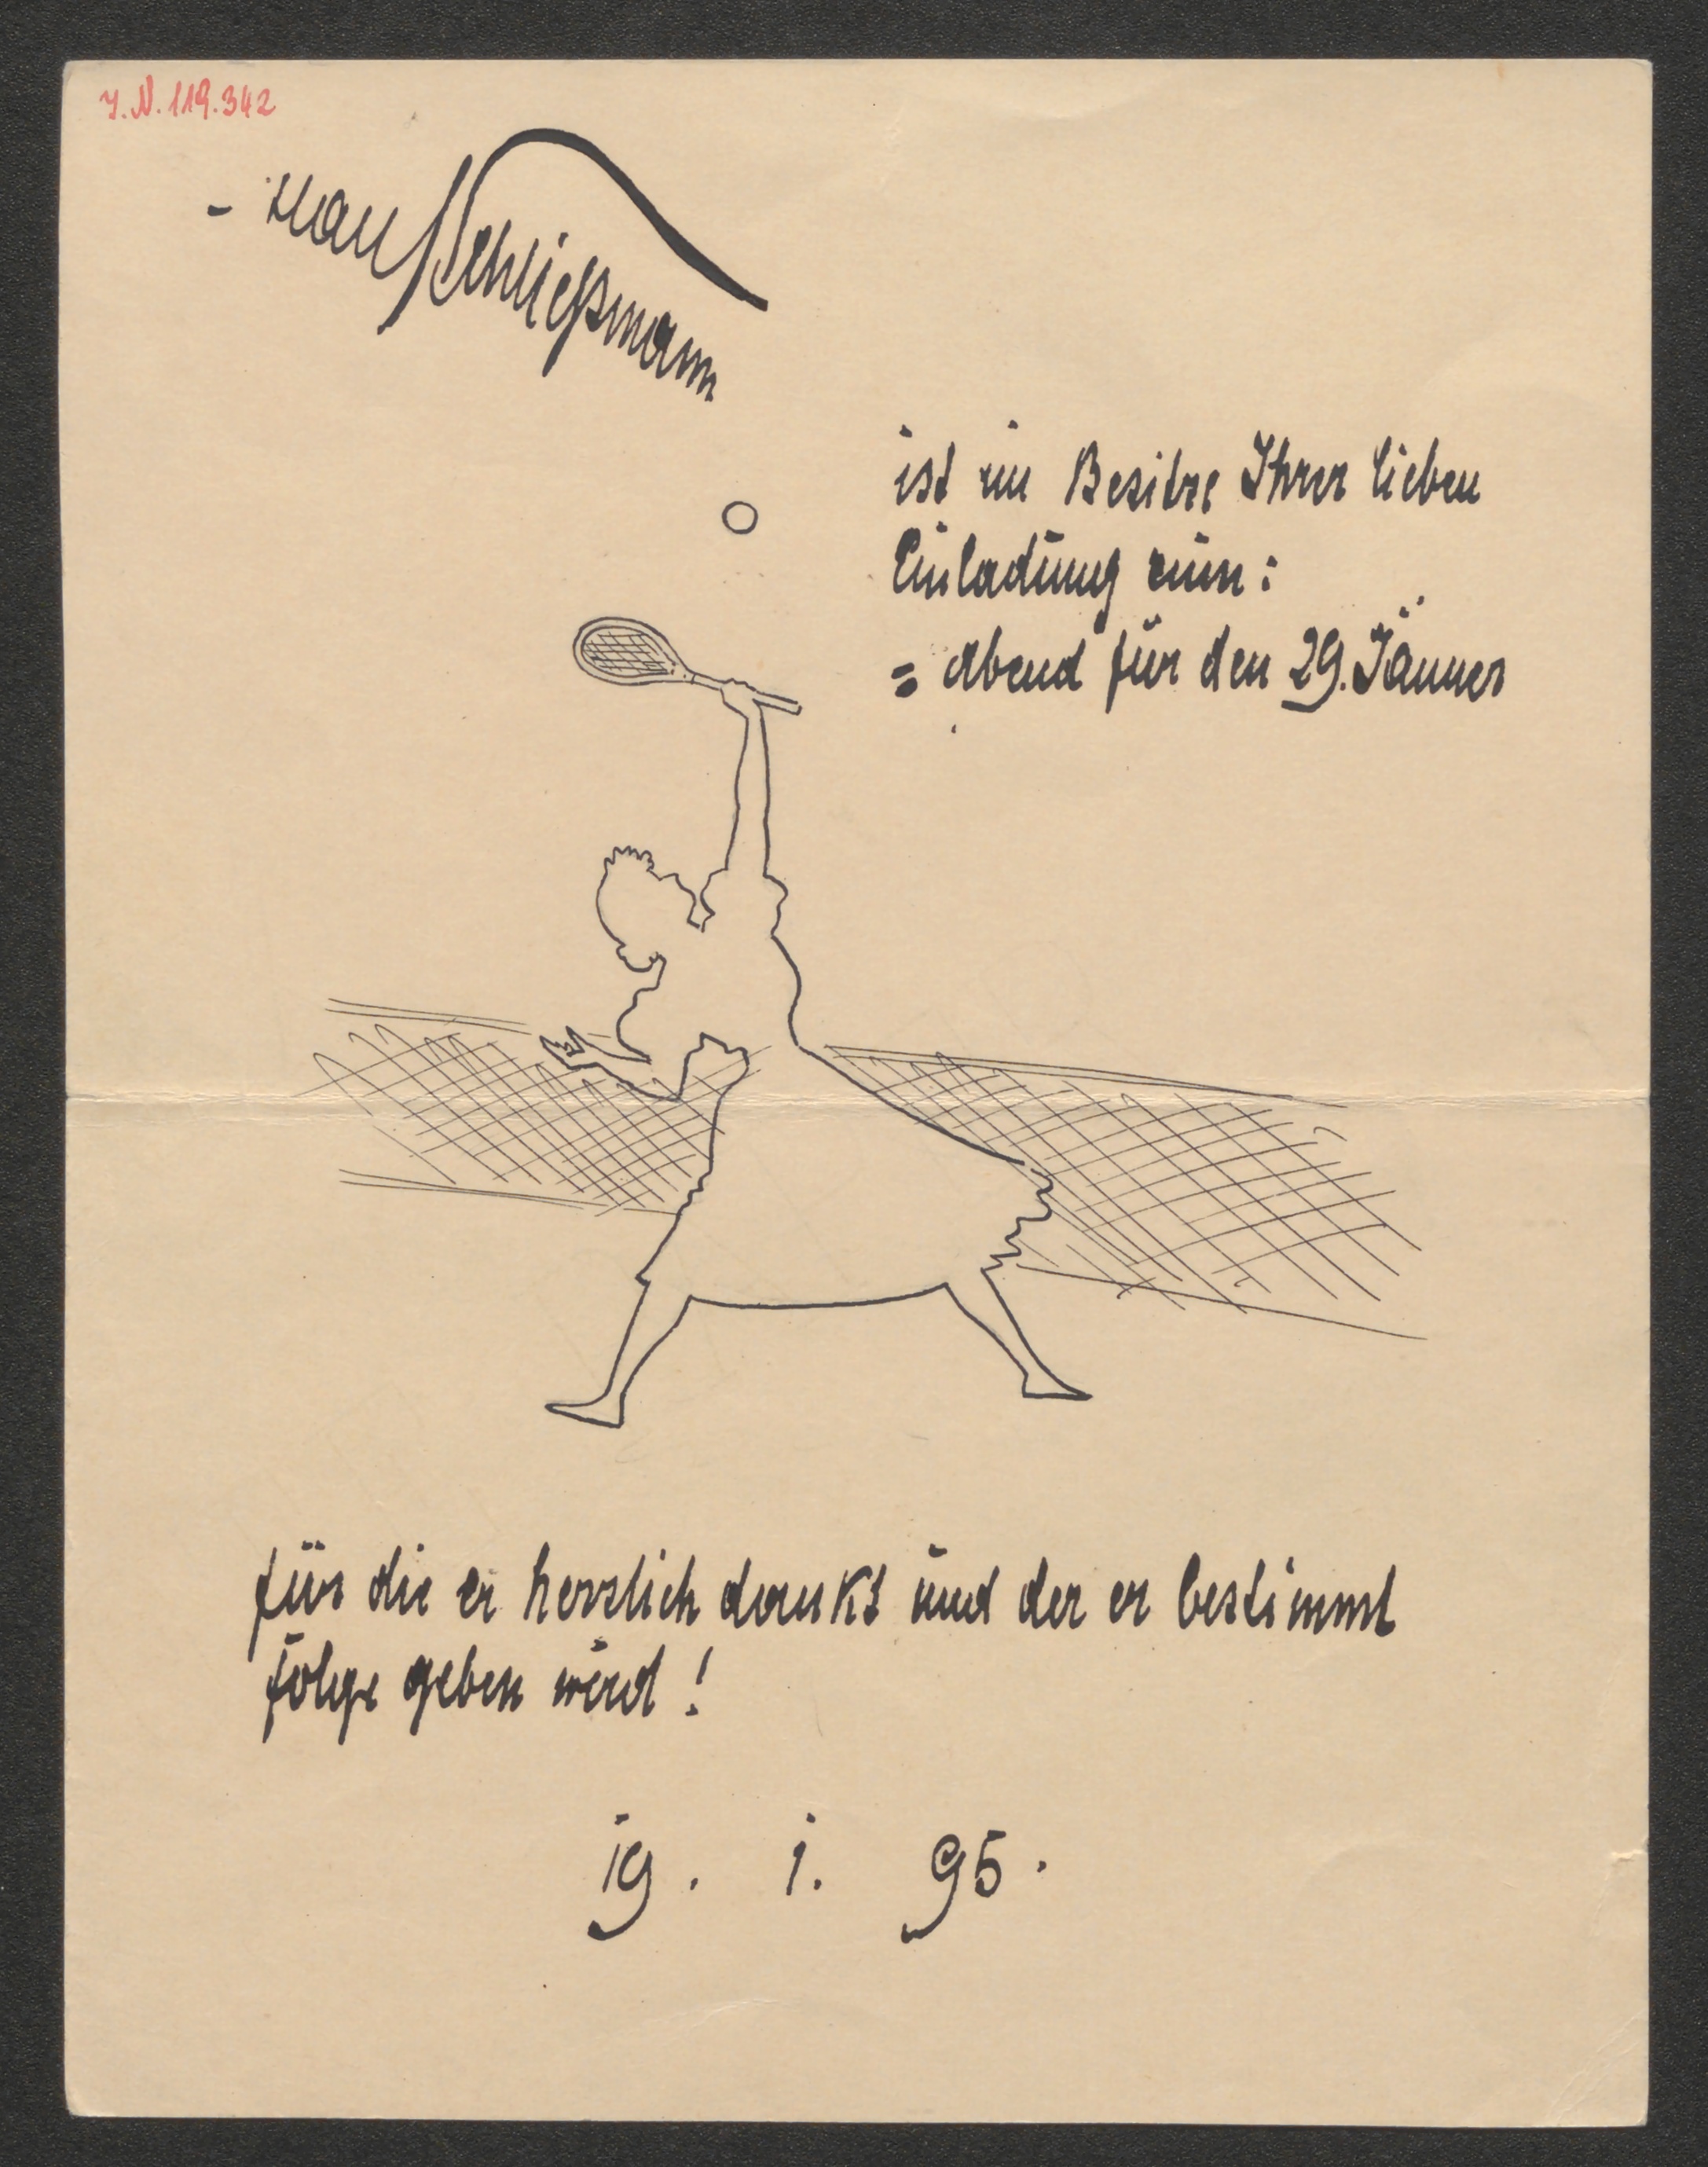 J.N. 119.342
- Hans Schließmann
ist im Besitze Ihrer lieben
Einladung zum:
= abend für den 29. Jänner
für die er herzlich dankt und der er bestimmt
folge geben wird!
19. 1. 95.